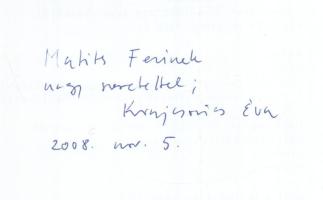 Matits Ferinek
nagy szeretettel;
Krajcsovics Éva
2008. nov. 5.